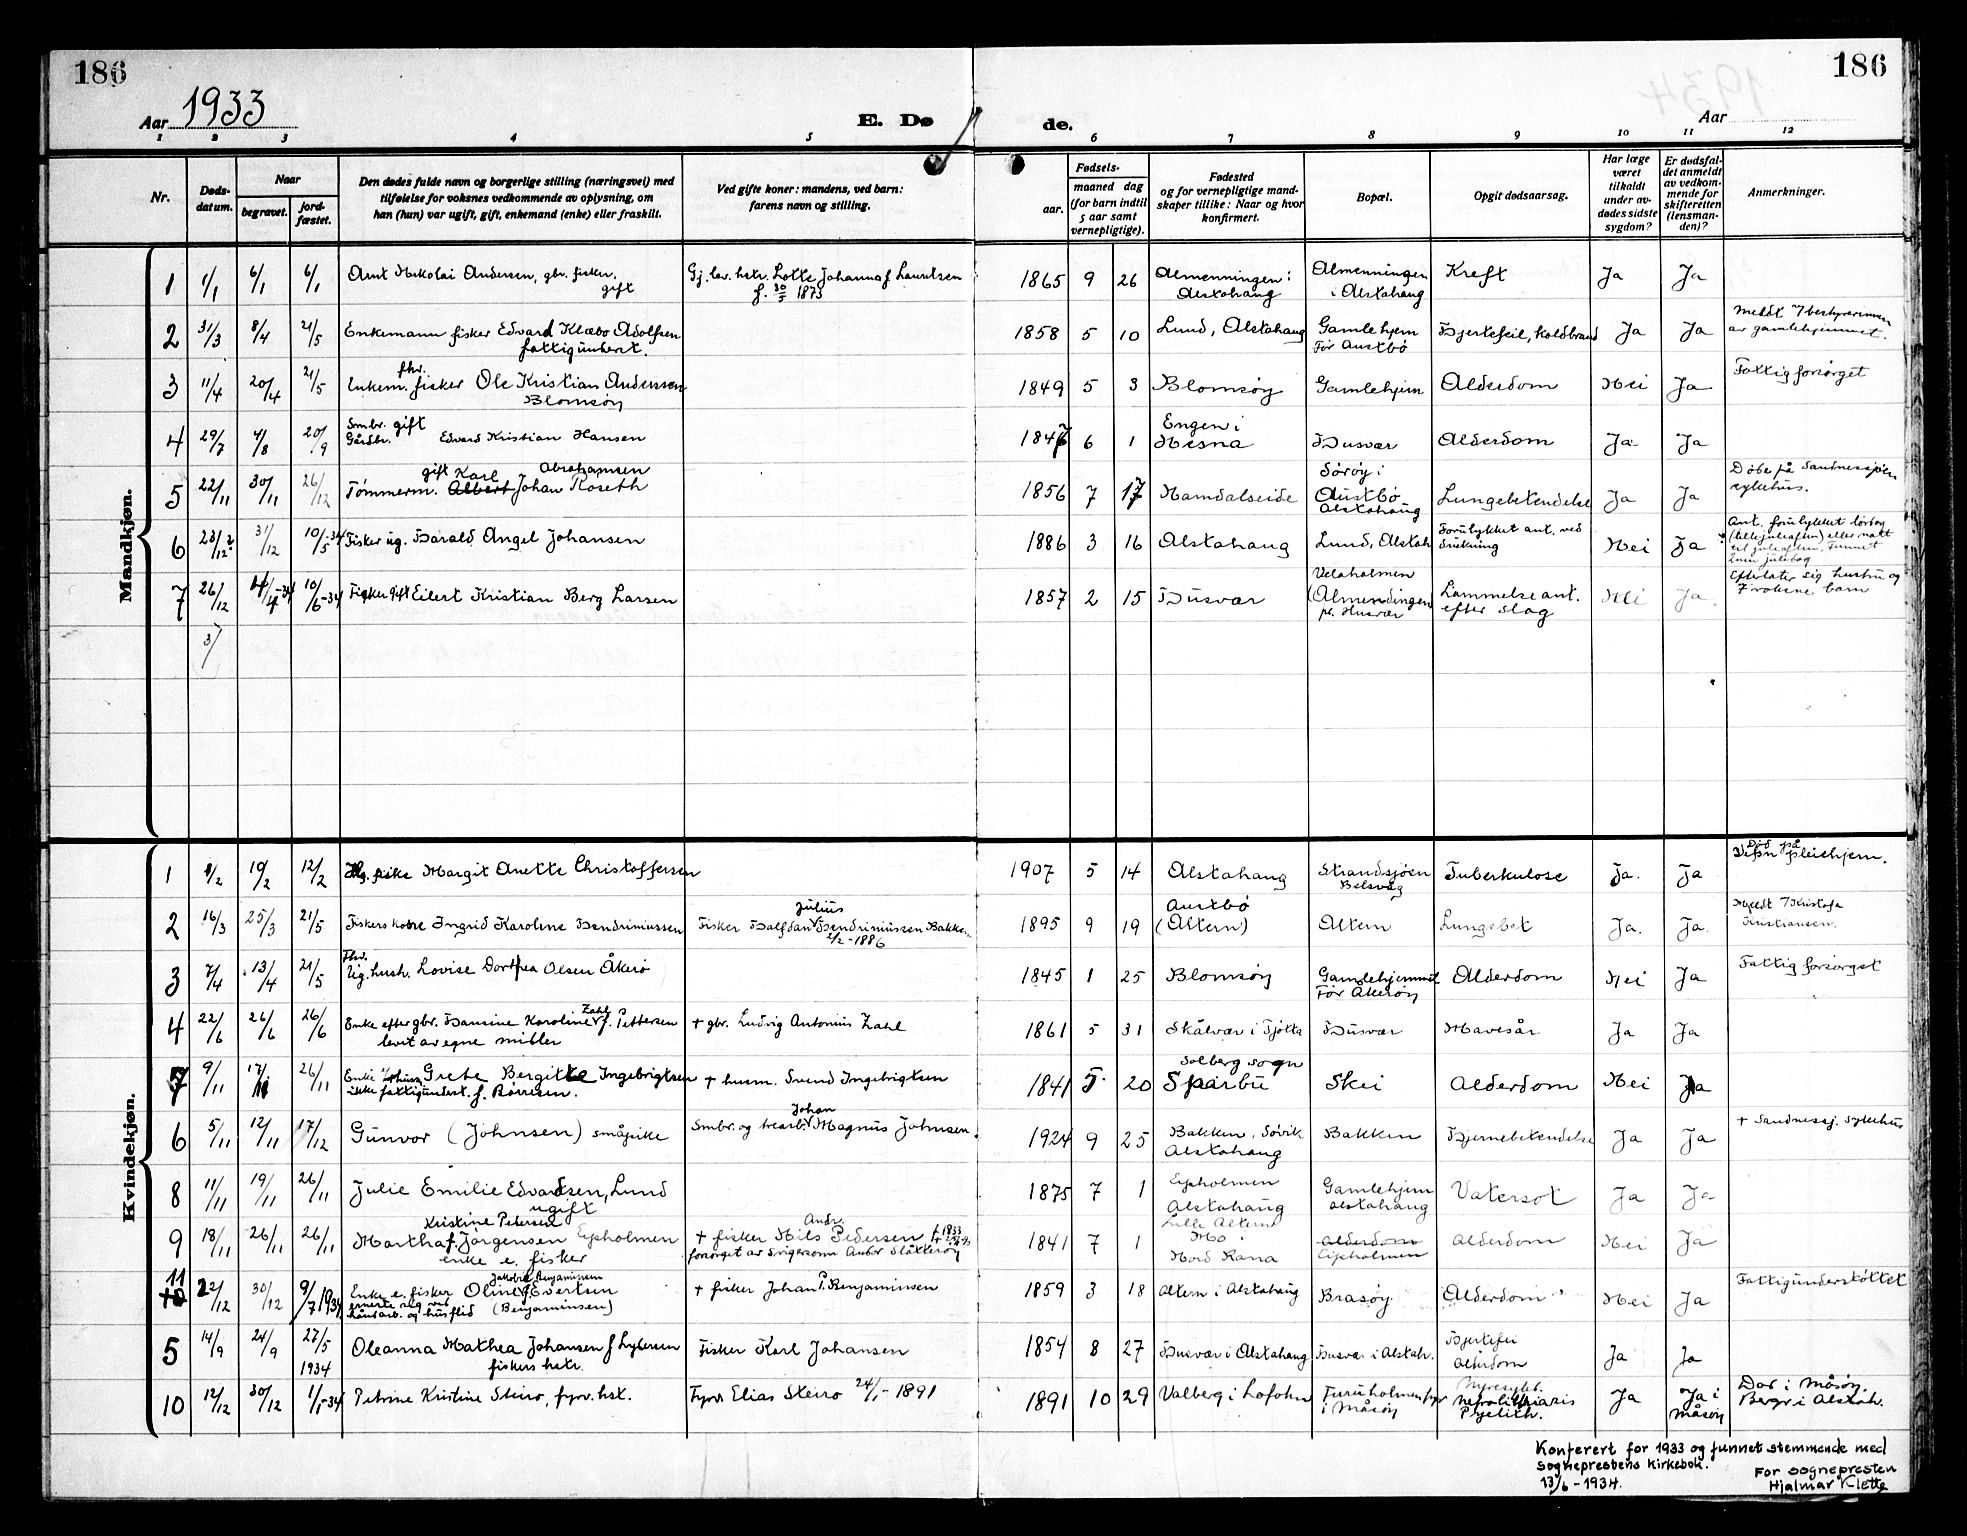 186
186
Aar 1933
E. Døde.
Aar
1 2 3 4 5 6 7 8 9 10 11 12
Nr.
Dødsdatum.
Naar
begravet.
jordfæstet.
Den dødes fulde navn og borgerlige stilling (næringsvei) med tilføielse for voksnes vedkommende av oplysning, om han (hun) var ugift, gift, enkemand (enke) eller fraskilt.
Ved gifte koner: mandens, ved barn: farens navn og stilling.
Fødsels-
aar.
maaned dag (for barn indtil 5 aar samt vernepligtige).
Fødested og for vernepligtige mandskaper tillike: Naar og hvor konfirmert.
Bopæl.
Opgit dødsaarsag.
Har læge været tilkaldt under avdødes sidste sygdom?
Er dødsfaldet anmeldt av vedkommende for skifteretten (lensmanden)?
Anmerkninger.
Mandkjøn.
1 1/1 6/1 6/1 Arnt Nikolai Andersen, gbr. fisker. gift Gj. lev. hstr. Lotte Johanna f Lauritsen f. 30/5 1873 1865 9 26 Almenningen i Alstahaug Almenningen i Alstahaug Kreft Ja Ja
2 31/3 8/4 21/5 Enkemann fisker Edvard Klæbo Adolfsen fattigunderst. 1858 5 10 Lund, Alstahaug Gamlehjem Før Austbø Hjertefeil, koldbrand Ja Ja Meldt v/bestyrerinnen av gamlehjemmet.
3 11/4 20/4 21/5 fhv. Enkem. fisker Ole Kristian Anderssen Blomsøy 1849 5 3 Blomsøy Gamlehjem Alderdom Nei Ja Fattigforsørget
4 29/7 4/8 20/9 Smbr. gift Gårdbr. Edvard Kristian Hansen 1847 6 1 Engen i Nesna Husvær Alderdom Ja Ja
5 22/11 30/11 26/12 gift Karl Abrahamsen Tømmerm. Albert Johan Roseth 1856 7 17 Namdalseide Sørøy i Austbø Alstahaug Lungebetendelse Ja Ja Døde på Sandnessjøen sykehus.
6 23/12 31/12 10/5-34 Fisker ug. Harald Angel Johansen 1886 3 16 Alstahaug Lund, Alstah Forulykket ant. ved drukning Nei Ja Ant. forulykket lørdag (lillejuleaften) eller natt til juleaften. Funnet 2nen juledag
7 26/12 4/4-34 10/6-34 Fisker gift Eilert Kristian Berg Larsen 1857 2 15 Husvær (Almendingen pr. Husvær Lammelse ant. efter slag Nei Ja. Efterlater sig hustru og 7 voksne barn
3/
Kvindekjøn.
1 8/2 19/2 12/2 Margit Anette Christoffersen 1907 5 14 Alstahaug Strandsjøen Belsvåg Tuberkulose Ja. Ja Død på Vefsn pleiehjem.
2 16/3 25/3 21/5 Fiskers kone Ingrid Karoline Hendrimussen Fisker Halfdan Julius Hendriniussen Bakken 2/2-1886 1895 9 19 Austbø (Altern) Altern Lungebet Ja. Ja. Meldt v/Kristofa Kristiansen.
3 7/4 13/4 21/5 Fhv. Ug. hush. Lovise Dorthea Olsen Åkerø 1845 1 25 Blomsøy Gamlehjemmet Før Akerøy Alderdom Nei Ja Fattigforsørget
4 22/6 26/6 26/6 Enke efter gbr. Hansine Karoline Zahl f. Pettersen levet av egne midler + gbr. Ludvig Antonius Zahl 1861 5 31 Skålvær i Tjøtta Husvær Mavesår Ja Ja
7 9/11 17/11 26/11 Enke Grete Bergitte Ingebrigtsen ikke fattigunderst. f. Børresen. + husm. Svend Ingebrigtsen 1841 5 20 Solberg sogn Sparbu Skei Alderdom Nei Ja
6 5/11 12/11 17/12 Gunvor (Johnsen) småpike Smbr. og trearb. Johan Magnus Johnsen. 1924 9 25 Bakken, Søvik Alstahaug Bakken Hjernebetendelse Ja Ja + Sandnessj. sykehus
8 11/11 19/11 26/11 Julie Emilie Edvardsen, Lund ugift 1875 7 1 Eipholmen Alstahaug Gamlehjem Alstahaug Vatersot Ja Ja
9 18/11 26/11 26/11 Kristine Petersen Martha f. Jørgensen Eipholmen enke e. fisker + fisker Nils Andr. Pedersen forsørget av Svigersønn Andor Slåtterøy 1841 7 1 Lille Altern Mo i Nord Rana Alderdom Eipholmen Alderdom Nei Ja
11 22/12 30/12 9/7 1934 Enke e. fisker Oline Jakobie Benjaminsen f. Evertsen ernærte sig ved håndarb. og husflid (Benjaminsen) + fisker Johan P. Benjaminsen 1859 3 18 Altern i Alstahaug Brasøy Alderdom Nei Ja Fattigunderstøttet
5 14/9 24/9 27/5 1934 Oleanna Mathea Johansen f Lydersen fiskers hstr. Fisker Karl Johansen 1854 8 27 Husvær i Alstahaug Husvær i Alstah. Hjertefei Alderdom Ja Ja
10 12/12 30/12 1/1-34 Petrine Kristine Steiro, fyrv. hst. Fyrv Elias Steiro 24/1-1891 1891 10 29 Valberg i Lofoten Furuholmen fyr i Måsøy Nyresykd. Nefrolithiasis Pyelith. Ja Ja i Måsøy Død i Måsøy. Begr i Alstah.
Konferert for 1933 og funnet stemmende med
sogneprestens kirkebok.
13/6-1934.
For sognepresten
Hjalmar Klette